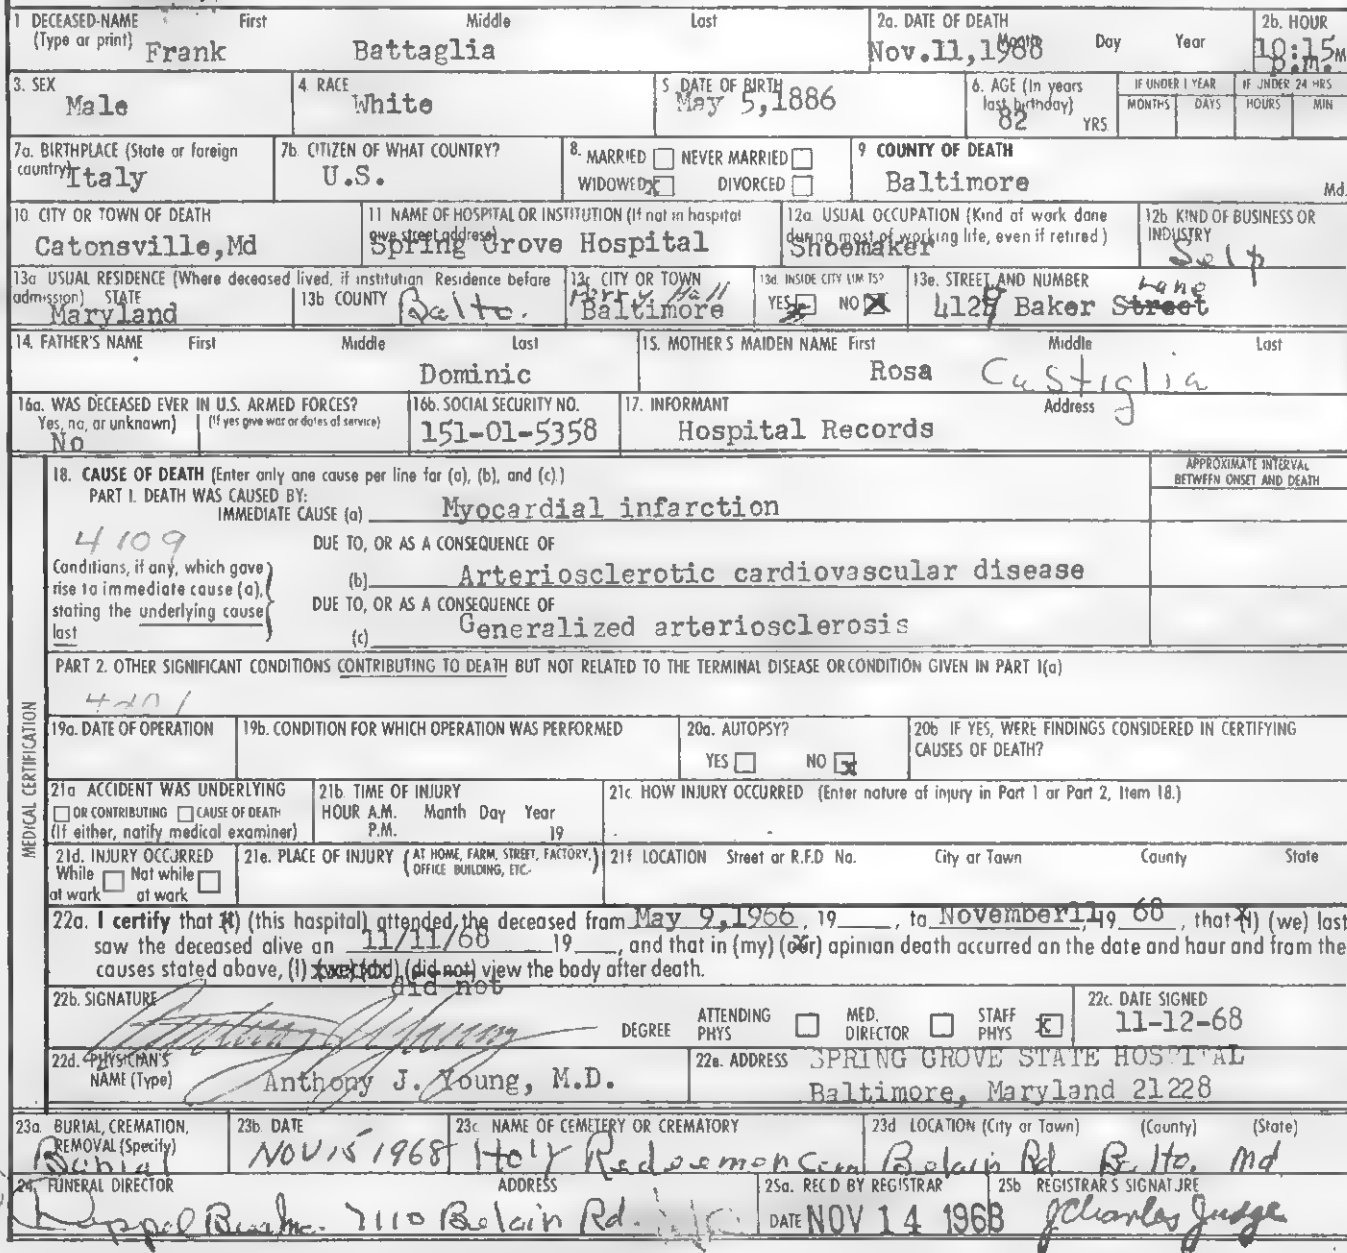 1 DECEASED-NAME First Middle Last
(Type or print) Frank Battaglia
2a. DATE OF DEATH Month Day Year
Nov.11,1968
2b. HOUR
10:15 M
p.m.
3. SEX
Male
4. RACE
White
5 DATE OF BIRTH
May 5,1886
6. AGE (In years last birthday)
82 YRS
IF UNDER 1 YEAR
MONTHS DAYS
IF UNDER 24 HRS
HOURS MIN
7a. BIRTHPLACE (State or foreign country)
Italy
7b. CITIZEN OF WHAT COUNTRY?
U.S.
8. MARRIED NEVER MARRIED
WIDOWED x DIVORCED
9 COUNTY OF DEATH
Baltimore Md.
10. CITY OR TOWN OF DEATH
Catonsville,Md
11 NAME OF HOSPITAL OR INSTITUTION (If not in hospital give street address)
Spring Grove Hospital
12a. USUAL OCCUPATION (Kind of work done during most of working life, even if retired)
Shoemaker
12b KIND OF BUSINESS OR INDUSTRY
Self
13a USUAL RESIDENCE (Where deceased lived, if institution Residence before admission) STATE
Maryland
13b COUNTY
Balto.
13c CITY OR TOWN
Perry Hall
Baltimore
13d. INSIDE CITY LIMITS?
YES NO X
13e. STREET AND NUMBER
Lane
4129 Baker Street
14. FATHER'S NAME First Middle Last
Dominic
15. MOTHER'S MAIDEN NAME First Middle Last
Rosa Castiglia
16a. WAS DECEASED EVER IN U.S. ARMED FORCES?
Yes, no, or unknown) (If yes give war or dates of service)
No
16b. SOCIAL SECURITY NO.
151-01-5358
17. INFORMANT Address
Hospital Records
18. CAUSE OF DEATH (Enter only one cause per line for (a), (b), and (c).)
APPROXIMATE INTERVAL
BETWEEN ONSET AND DEATH
PART I. DEATH WAS CAUSED BY:
IMMEDIATE CAUSE (a) Myocardial infarction
4109
DUE TO, OR AS A CONSEQUENCE OF
Conditions, if any, which gave rise to immediate cause (a), stating the underlying cause last
(b) Arteriosclerotic cardiovascular disease
DUE TO, OR AS A CONSEQUENCE OF
(c) Generalized arteriosclerosis
PART 2. OTHER SIGNIFICANT CONDITIONS CONTRIBUTING TO DEATH BUT NOT RELATED TO THE TERMINAL DISEASE OR CONDITION GIVEN IN PART 1(a)
4201
MEDICAL CERTIFICATION
19a. DATE OF OPERATION
19b. CONDITION FOR WHICH OPERATION WAS PERFORMED
20a. AUTOPSY?
YES NO x
20b IF YES, WERE FINDINGS CONSIDERED IN CERTIFYING CAUSES OF DEATH?
21a ACCIDENT WAS UNDERLYING
OR CONTRIBUTING CAUSE OF DEATH
(If either, notify medical examiner)
21b. TIME OF INJURY
HOUR A.M. Month Day Year
P.M. 19
21c. HOW INJURY OCCURRED (Enter nature of injury in Part 1 or Part 2, Item 18.)
21d. INJURY OCCURRED
While at work Not while at work
21e. PLACE OF INJURY (AT HOME, FARM, STREET, FACTORY, OFFICE BUILDING, ETC.)
21f LOCATION Street or R.F.D No. City or Town County State
22a. I certify that (I) (this hospital) attended the deceased from May 9,1966, 19 , to November 11, 19 68, that (I) (we) last
saw the deceased alive on 11/11/68 19 , and that in (my) (our) opinion death occurred on the date and hour and from the
causes stated above, (I) (we) (did) (did not) view the body after death.
did not
22b. SIGNATURE
DEGREE ATTENDING PHYS MED. DIRECTOR STAFF PHYS x
22c. DATE SIGNED
11-12-68
22d. PHYSICIAN'S NAME (Type) Anthony J. Young, M.D.
22e. ADDRESS SPRING GROVE STATE HOSPITAL
Baltimore, Maryland 21228
23a. BURIAL, CREMATION, REMOVAL (Specify)
Burial
23b. DATE
NOV 15 1968
23c. NAME OF CEMETERY OR CREMATORY
Holy Redeemer Cem
23d LOCATION (City or Town) (County) (State)
Belair Rd Balto. Md
24. FUNERAL DIRECTOR ADDRESS
7110 Belair Rd.
25a. REC'D BY REGISTRAR
DATE NOV 14 1968
25b REGISTRAR'S SIGNATURE
J Charles Judge